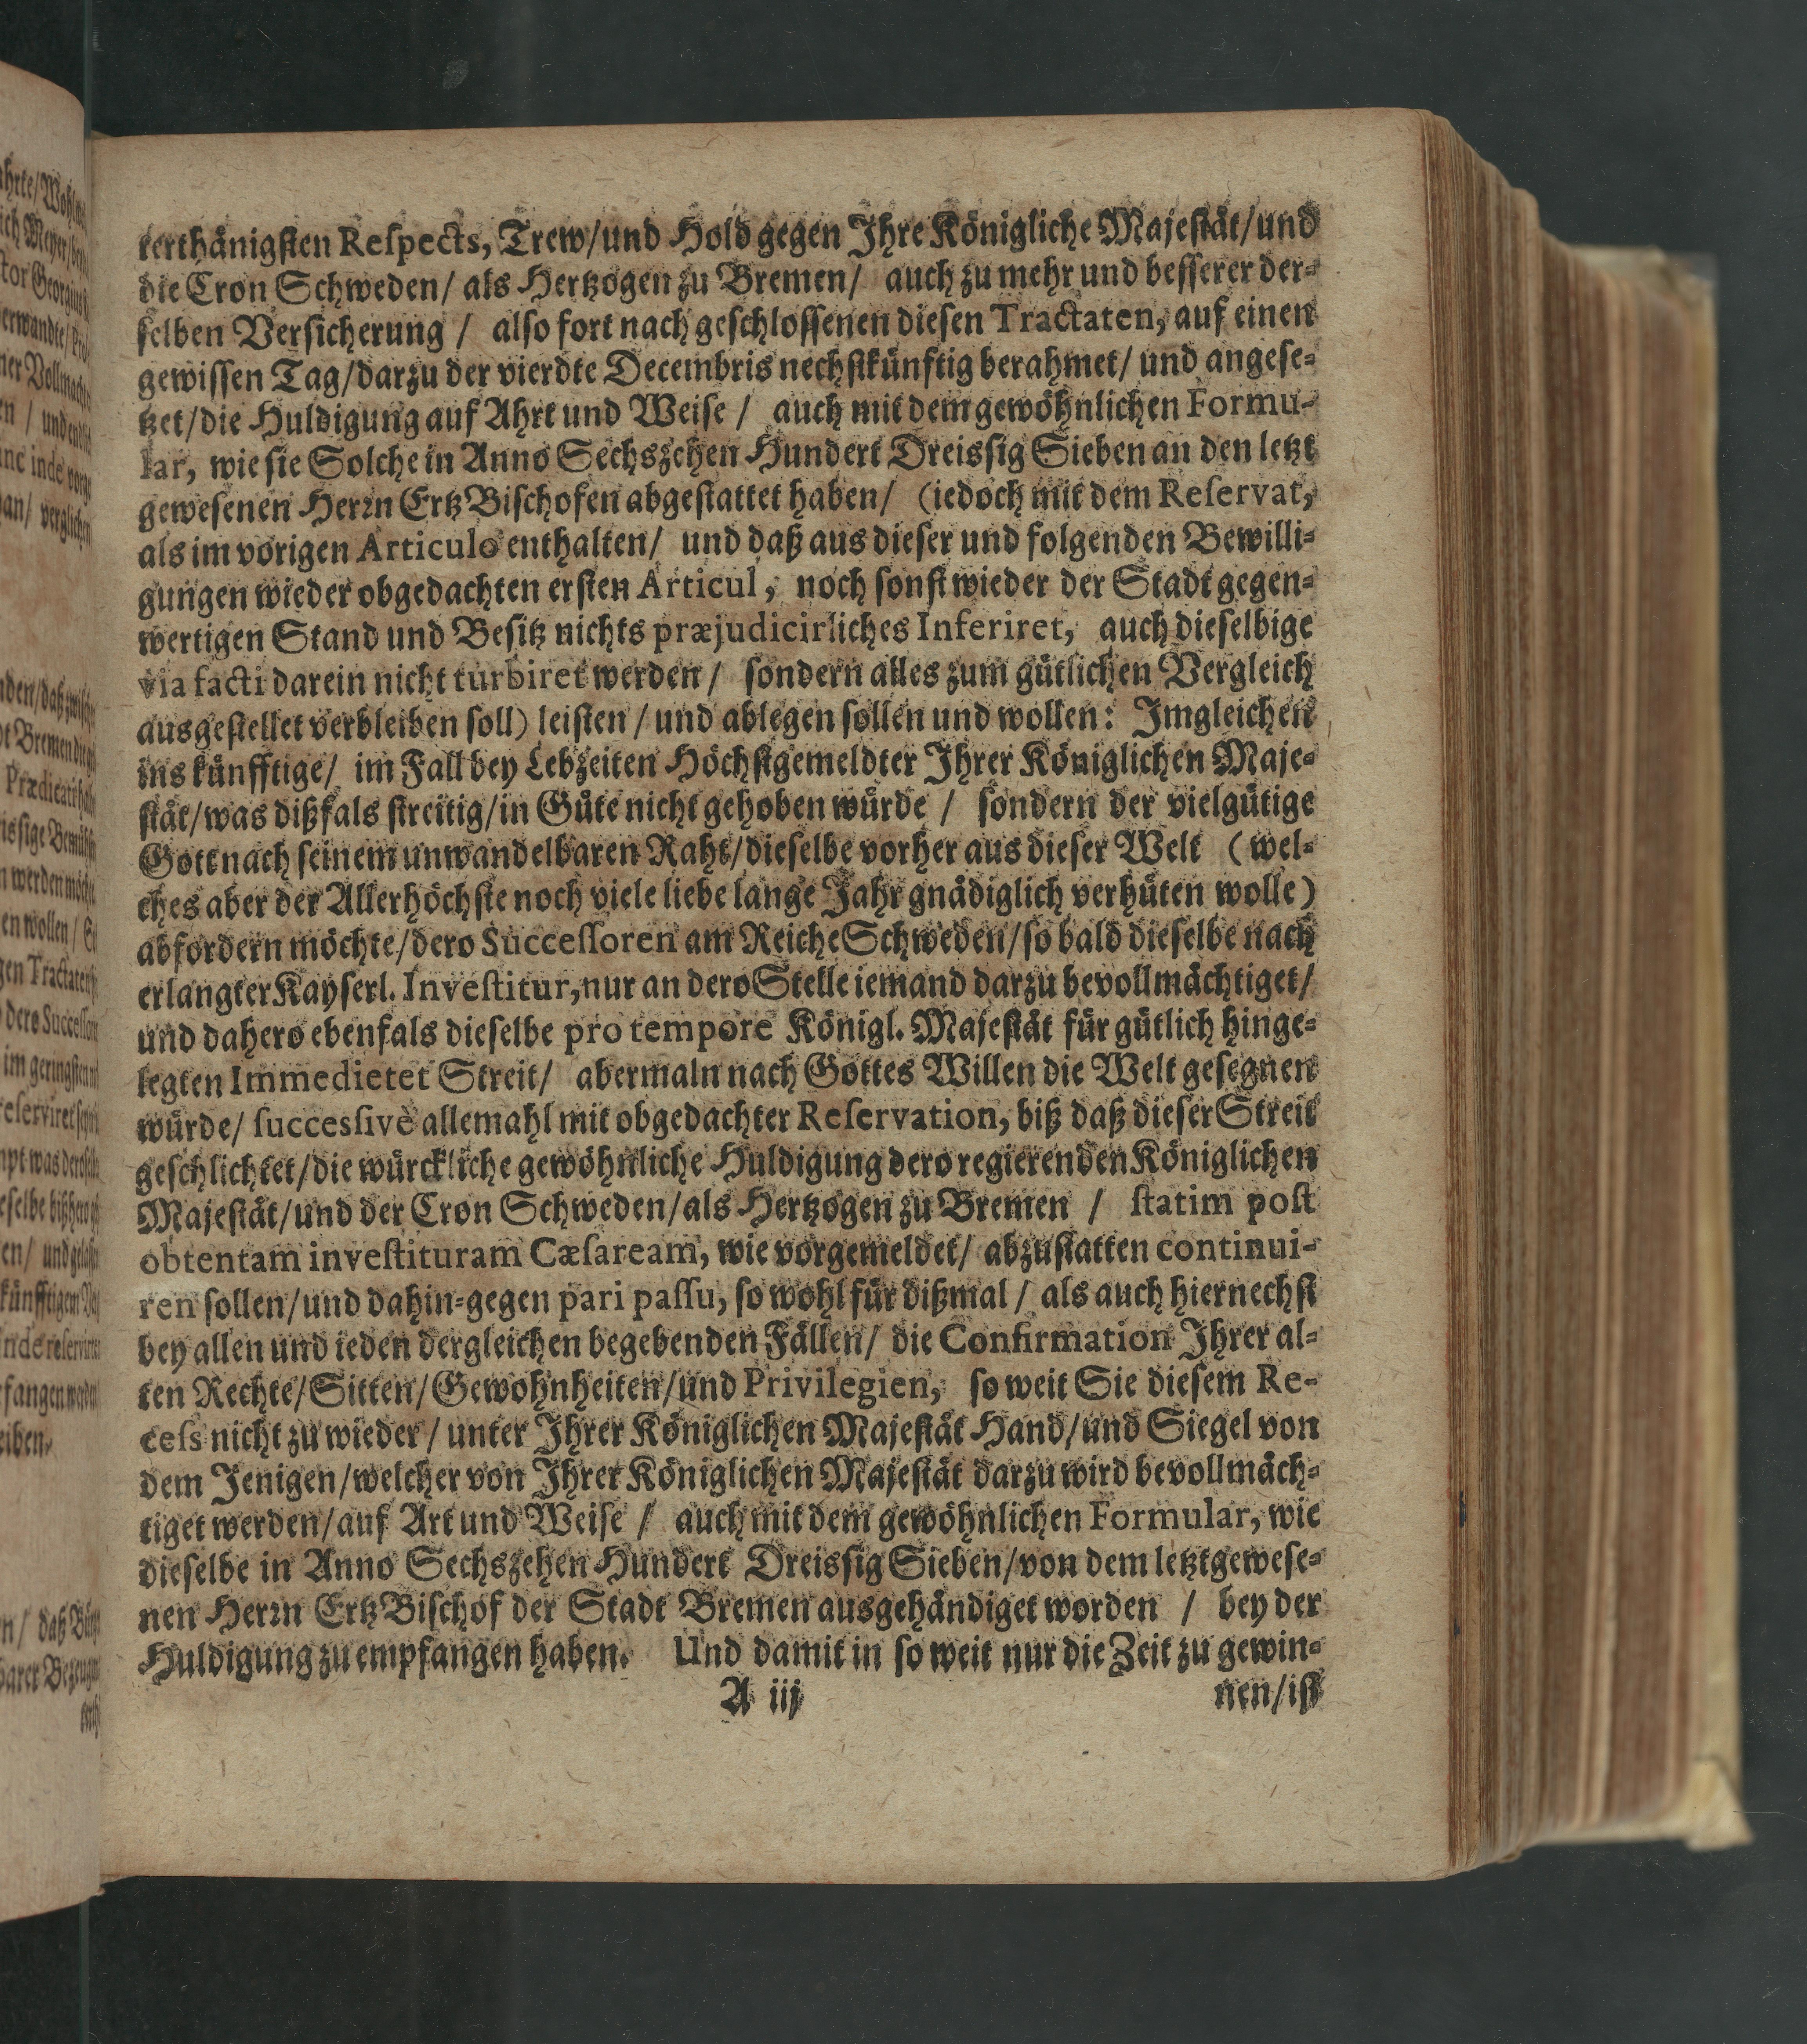 terthänigsten Respects, Trew/und Hold gegen Ihre Königliche Majestät/und
die Cron Schweden/ als Hertzogen zu Bremen/ auch zu mehr und besserer der-
selben Versicherung / also fort nach geschlossenen diesen Tractaten, auf einen
gewissen Tag/darzu der vierdte Decembris nechstkünftig berahmet/ und angese-
tzet/die Huldigung auf Ahrt und Weise / auch mit dem gewöhnlichen Formu-
lar, wie sie Solche in Anno Sechszehen Hundert Dreissig Sieben an den letzt
gewesenen Herrn Ertz Bischofen abgestattet haben/ (iedoch mit dem Reservat,
als im vorigen Articulo enthalten/ und daß aus dieser und folgenden Bewilli-
gungen wieder obgedachten ersten Articul, noch sonst wieder der Stadt gegen-
wertigen Stand und Besitz nichts præjudicirliches Inferiret, auch dieselbige
via facti darein nicht turbiret werden / sondern alles zum gütlichen Vergleich
ausgestellet verbleiben soll) leisten / und ablegen sollen und wollen: Imgleichen
ins künfftige/ im Fall bey Lebzeiten Höchstgemeldter Ihrer Königlichen Maje-
stät/was dißfals streitig/in Güte nicht gehoben würde / sondern der vielgütige
Gott nach seinem unwandelbaren Raht/dieselbe vorher aus dieser Welt (wel-
ches aber der Allerhöchste noch viele liebe lange Jahr gnädiglich verhüten wolle)
abfordern möchte/dero Successoren am Reiche Schweden/so bald dieselbe nach
erlangter Kayserl. Investitur, nur an dero Stelle iemand darzu bevollmächtiget/
und dahero ebenfals dieselbe pro tempore Königl. Majestät für gütlich hinge-
legten Immedietet Streit/ abermaln nach Gottes Willen die Welt gesegnen
würde/ successivè allemahl mit obgedachter Reservation, biß daß dieser Streit
geschlichtet/die würckliche gewöhnliche Huldigung dero regierenden Königlichen
Majestät/und der Cron Schweden/als Hertzogen zu Bremen / statim post
obtentam investituram Cæsaream, wie vorgemeldet/ abzustatten continui-
ren sollen/und dahin-gegen pari passu, so wohl für dißmal / als auch hiernechst
bey allen und ieden dergleichen begebenden Fällen/ die Confirmation Ihrer al-
ten Rechte/Sitten/Gewohnheiten/und Privilegien, so weit Sie diesem Re-
cess nicht zu wieder/ unter Ihrer Königlichen Majestät Hand/und Siegel von
dem Jenigen/welcher von Ihrer Königlichen Majestät darzu wird bevollmäch-
tiget werden/auf Art und Weise / auch mit dem gewöhnlichen Formular, wie
dieselbe in Anno Sechszehen Hundert Dreissig Sieben/von dem letztgewese-
nen Herrn Ertz Bischof der Stadt Bremen ausgehändiget worden / bey der
Huldigung zu empfangen haben. Und damit in so weit nur die Zeit zu gewin-
A iij nen/ist